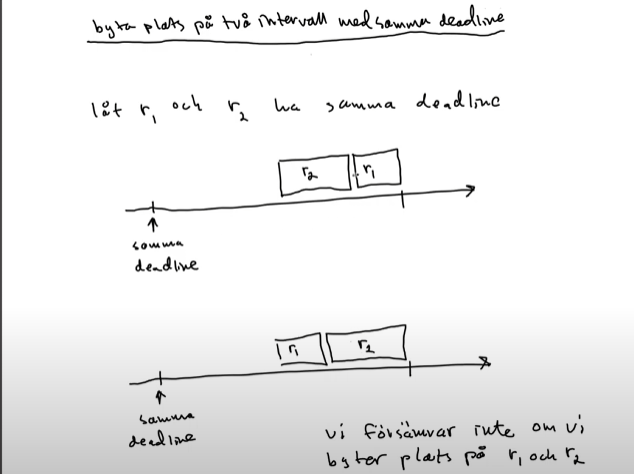 byta plats på två intervall med samma deadline
låt r₁ och r₂ ha samma deadline
r₂ r₁
samma
deadline
r₁ r₂
samma
deadline
vi försämrar inte om vi
byter plats på r₁ och r₂